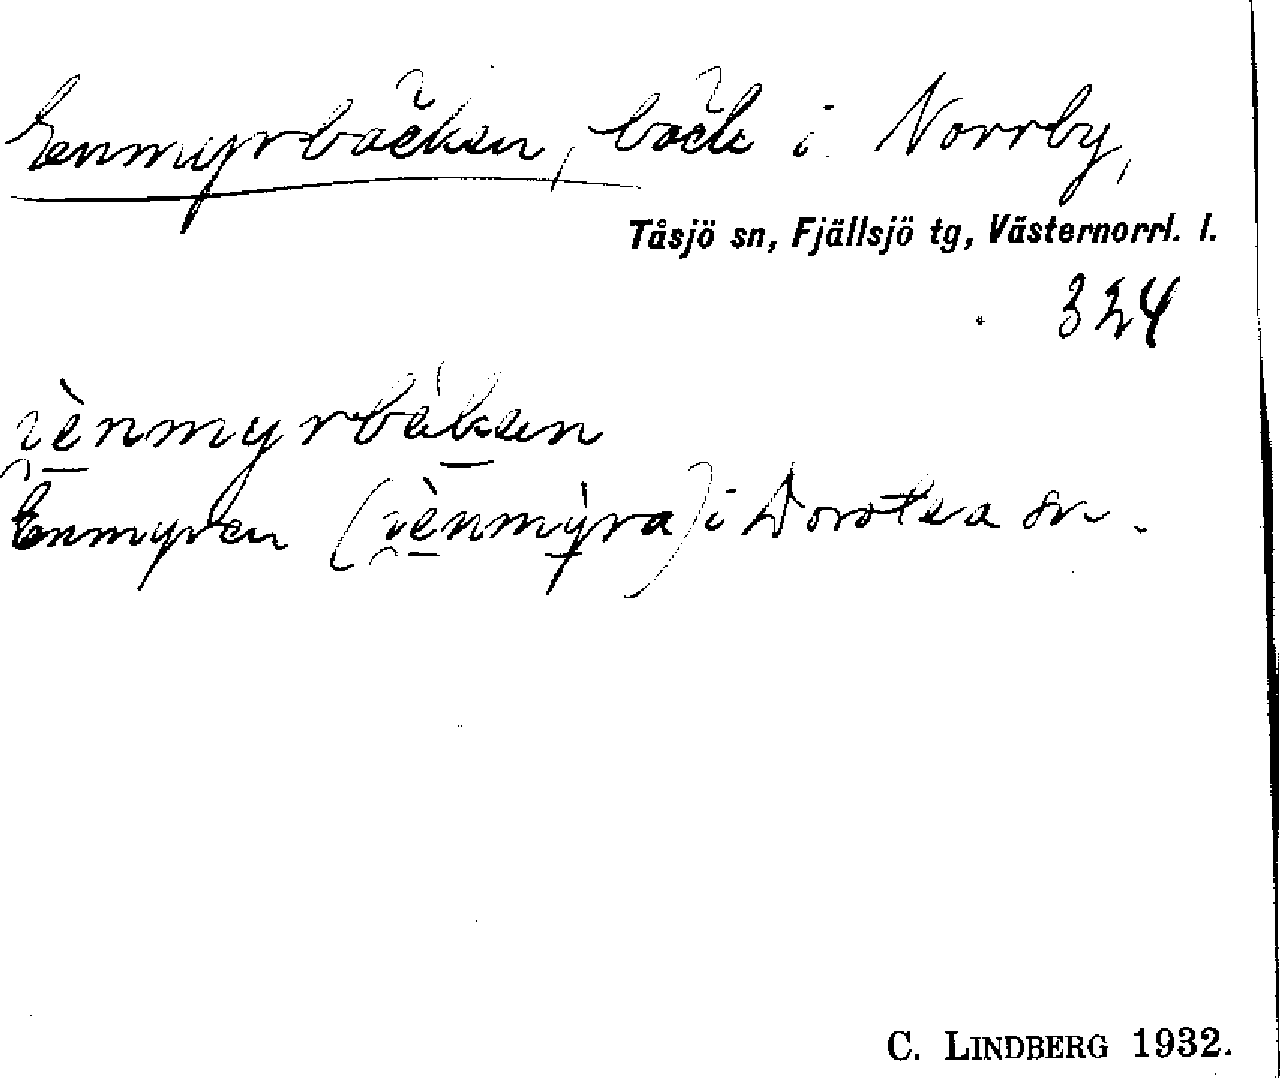 Enmyrbäcken, bäck i Norrby,
Tåsjö sn, Fjällsjö tg, Västernorrl. l.
324
i̯è̱nmyrbäksen
Enmyren (i̯è̱nmýra) i Dorotea sn.
C. LINDBERG 1932.